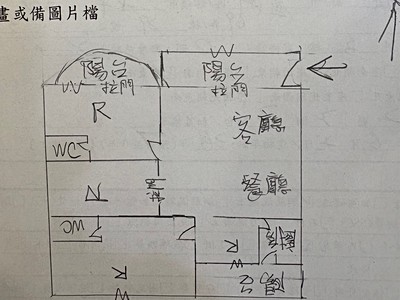 畫或備圖片檔
陽台
拉門
陽台
拉門
R
客廳
WC
餐廳
R
WC
廚房
R
R
陽台